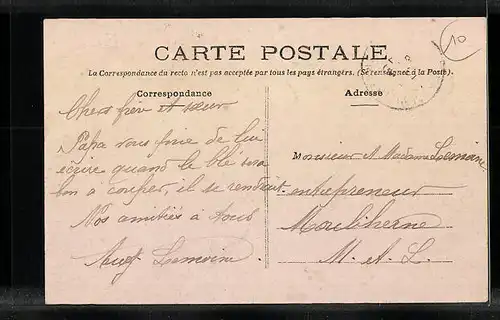 CARTE POSTALE
La Correspondance du recto n'est pas acceptée par tous les pays étrangers. (Se renseigner à la Poste).
Correspondance
Chers frère et sœur
Papa vous prie de lui
écrire quand le blé sera
bon à couper, il se rendrait
Nos amitiés à tous
Aug Lemoine
Adresse
Monsieur et Madame Lemoine
entrepreneur
Mouliherne
M. et L.
10